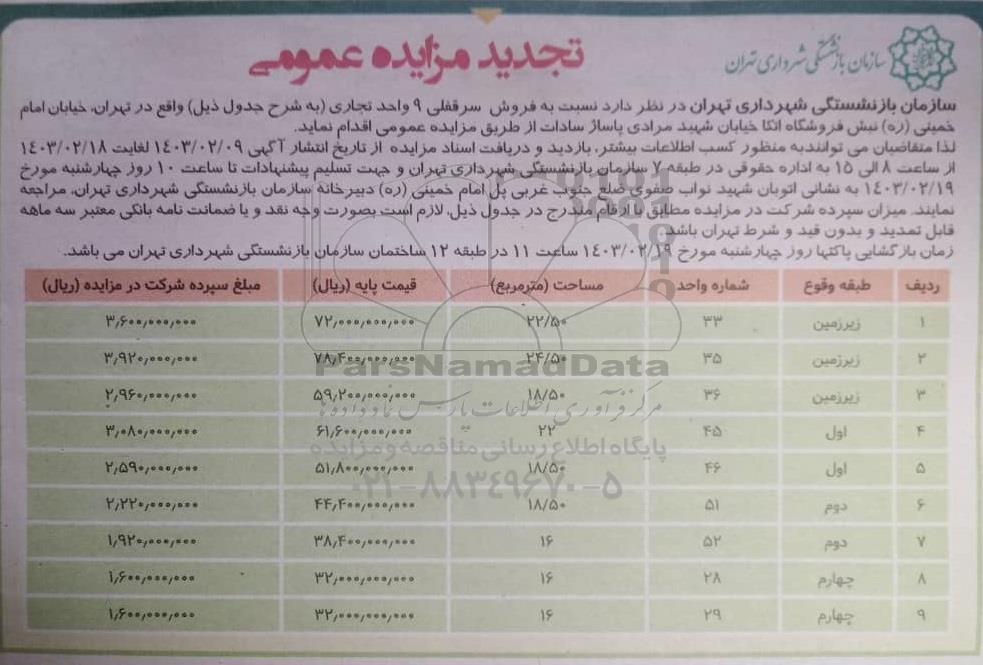 سازمان بازنشستگی شهرداری تهران
تجدید مزایده عمومی
سازمان بازنشستگی شهرداری تهران در نظر دارد نسبت به فروش سرقفلی ۹ واحد تجاری (به شرح جدول ذیل) واقع در تهران، خیابان امام
خمینی (ره) نبش فروشگاه اتکا خیابان شهید مرادی پاساژ سادات از طریق مزایده عمومی اقدام نماید.
لذا متقاضیان می توانندبه منظور کسب اطلاعات بیشتر، بازدید و دریافت اسناد مزایده از تاریخ انتشار آگهی ۱۴۰۳/۰۲/۰۹ لغایت ۱۴۰۳/۰۲/۱۸
از ساعت ۸ الی ۱۵ به اداره حقوقی در طبقه ۷ سازمان بازنشستگی شهرداری تهران و جهت تسلیم پیشنهادات تا ساعت ۱۰ روز چهارشنبه مورخ
۱۴۰۳/۰۲/۱۹ به نشانی اتوبان شهید نواب صفوی ضلع جنوب غربی پل امام خمینی (ره) دبیرخانه سازمان بازنشستگی شهرداری تهران، مراجعه
نمایند. میزان سپرده شرکت در مزایده مطابق با ارقام مندرج در جدول ذیل، لازم است بصورت وجه نقد و یا ضمانت نامه بانکی معتبر سه ماهه
قابل تمدید و بدون قید و شرط تهران باشد.
زمان بازگشایی پاکتها روز چهارشنبه مورخ ۱۴۰۳/۰۲/۱۹ ساعت ۱۱ در طبقه ۱۲ ساختمان سازمان بازنشستگی شهرداری تهران می باشد.
ردیف طبقه وقوع شماره واحد مساحت (مترمربع) قیمت پایه (ریال) مبلغ سپرده شرکت در مزایده (ریال)
۱ زیرزمین ۳۳ ۲۲/۵۰ ۷۲٫۰۰۰٫۰۰۰٫۰۰۰ ۳٫۶۰۰٫۰۰۰٫۰۰۰
۲ زیرزمین ۳۵ ۲۴/۵۰ ۷۸٫۴۰۰٫۰۰۰٫۰۰۰ ۳٫۹۲۰٫۰۰۰٫۰۰۰
۳ زیرزمین ۳۶ ۱۸/۵۰ ۵۹٫۲۰۰٫۰۰۰٫۰۰۰ ۲٫۹۶۰٫۰۰۰٫۰۰۰
۴ اول ۴۵ ۲۲ ۶۱٫۶۰۰٫۰۰۰٫۰۰۰ ۳٫۰۸۰٫۰۰۰٫۰۰۰
۵ اول ۴۶ ۱۸/۵۰ ۵۱٫۸۰۰٫۰۰۰٫۰۰۰ ۲٫۵۹۰٫۰۰۰٫۰۰۰
۶ دوم ۵۱ ۱۸/۵۰ ۴۴٫۴۰۰٫۰۰۰٫۰۰۰ ۲٫۲۲۰٫۰۰۰٫۰۰۰
۷ دوم ۵۲ ۱۶ ۳۸٫۴۰۰٫۰۰۰٫۰۰۰ ۱٫۹۲۰٫۰۰۰٫۰۰۰
۸ چهارم ۲۸ ۱۶ ۳۲٫۰۰۰٫۰۰۰٫۰۰۰ ۱٫۶۰۰٫۰۰۰٫۰۰۰
۹ چهارم ۲۹ ۱۶ ۳۲٫۰۰۰٫۰۰۰٫۰۰۰ ۱٫۶۰۰٫۰۰۰٫۰۰۰
ParsNamadData
مرکز فرآوری اطلاعات پارس نماد داده ها
پایگاه اطلاع رسانی مناقصه و مزایده
۰۲۱-۸۸۳۴۹۶۷۰-۵